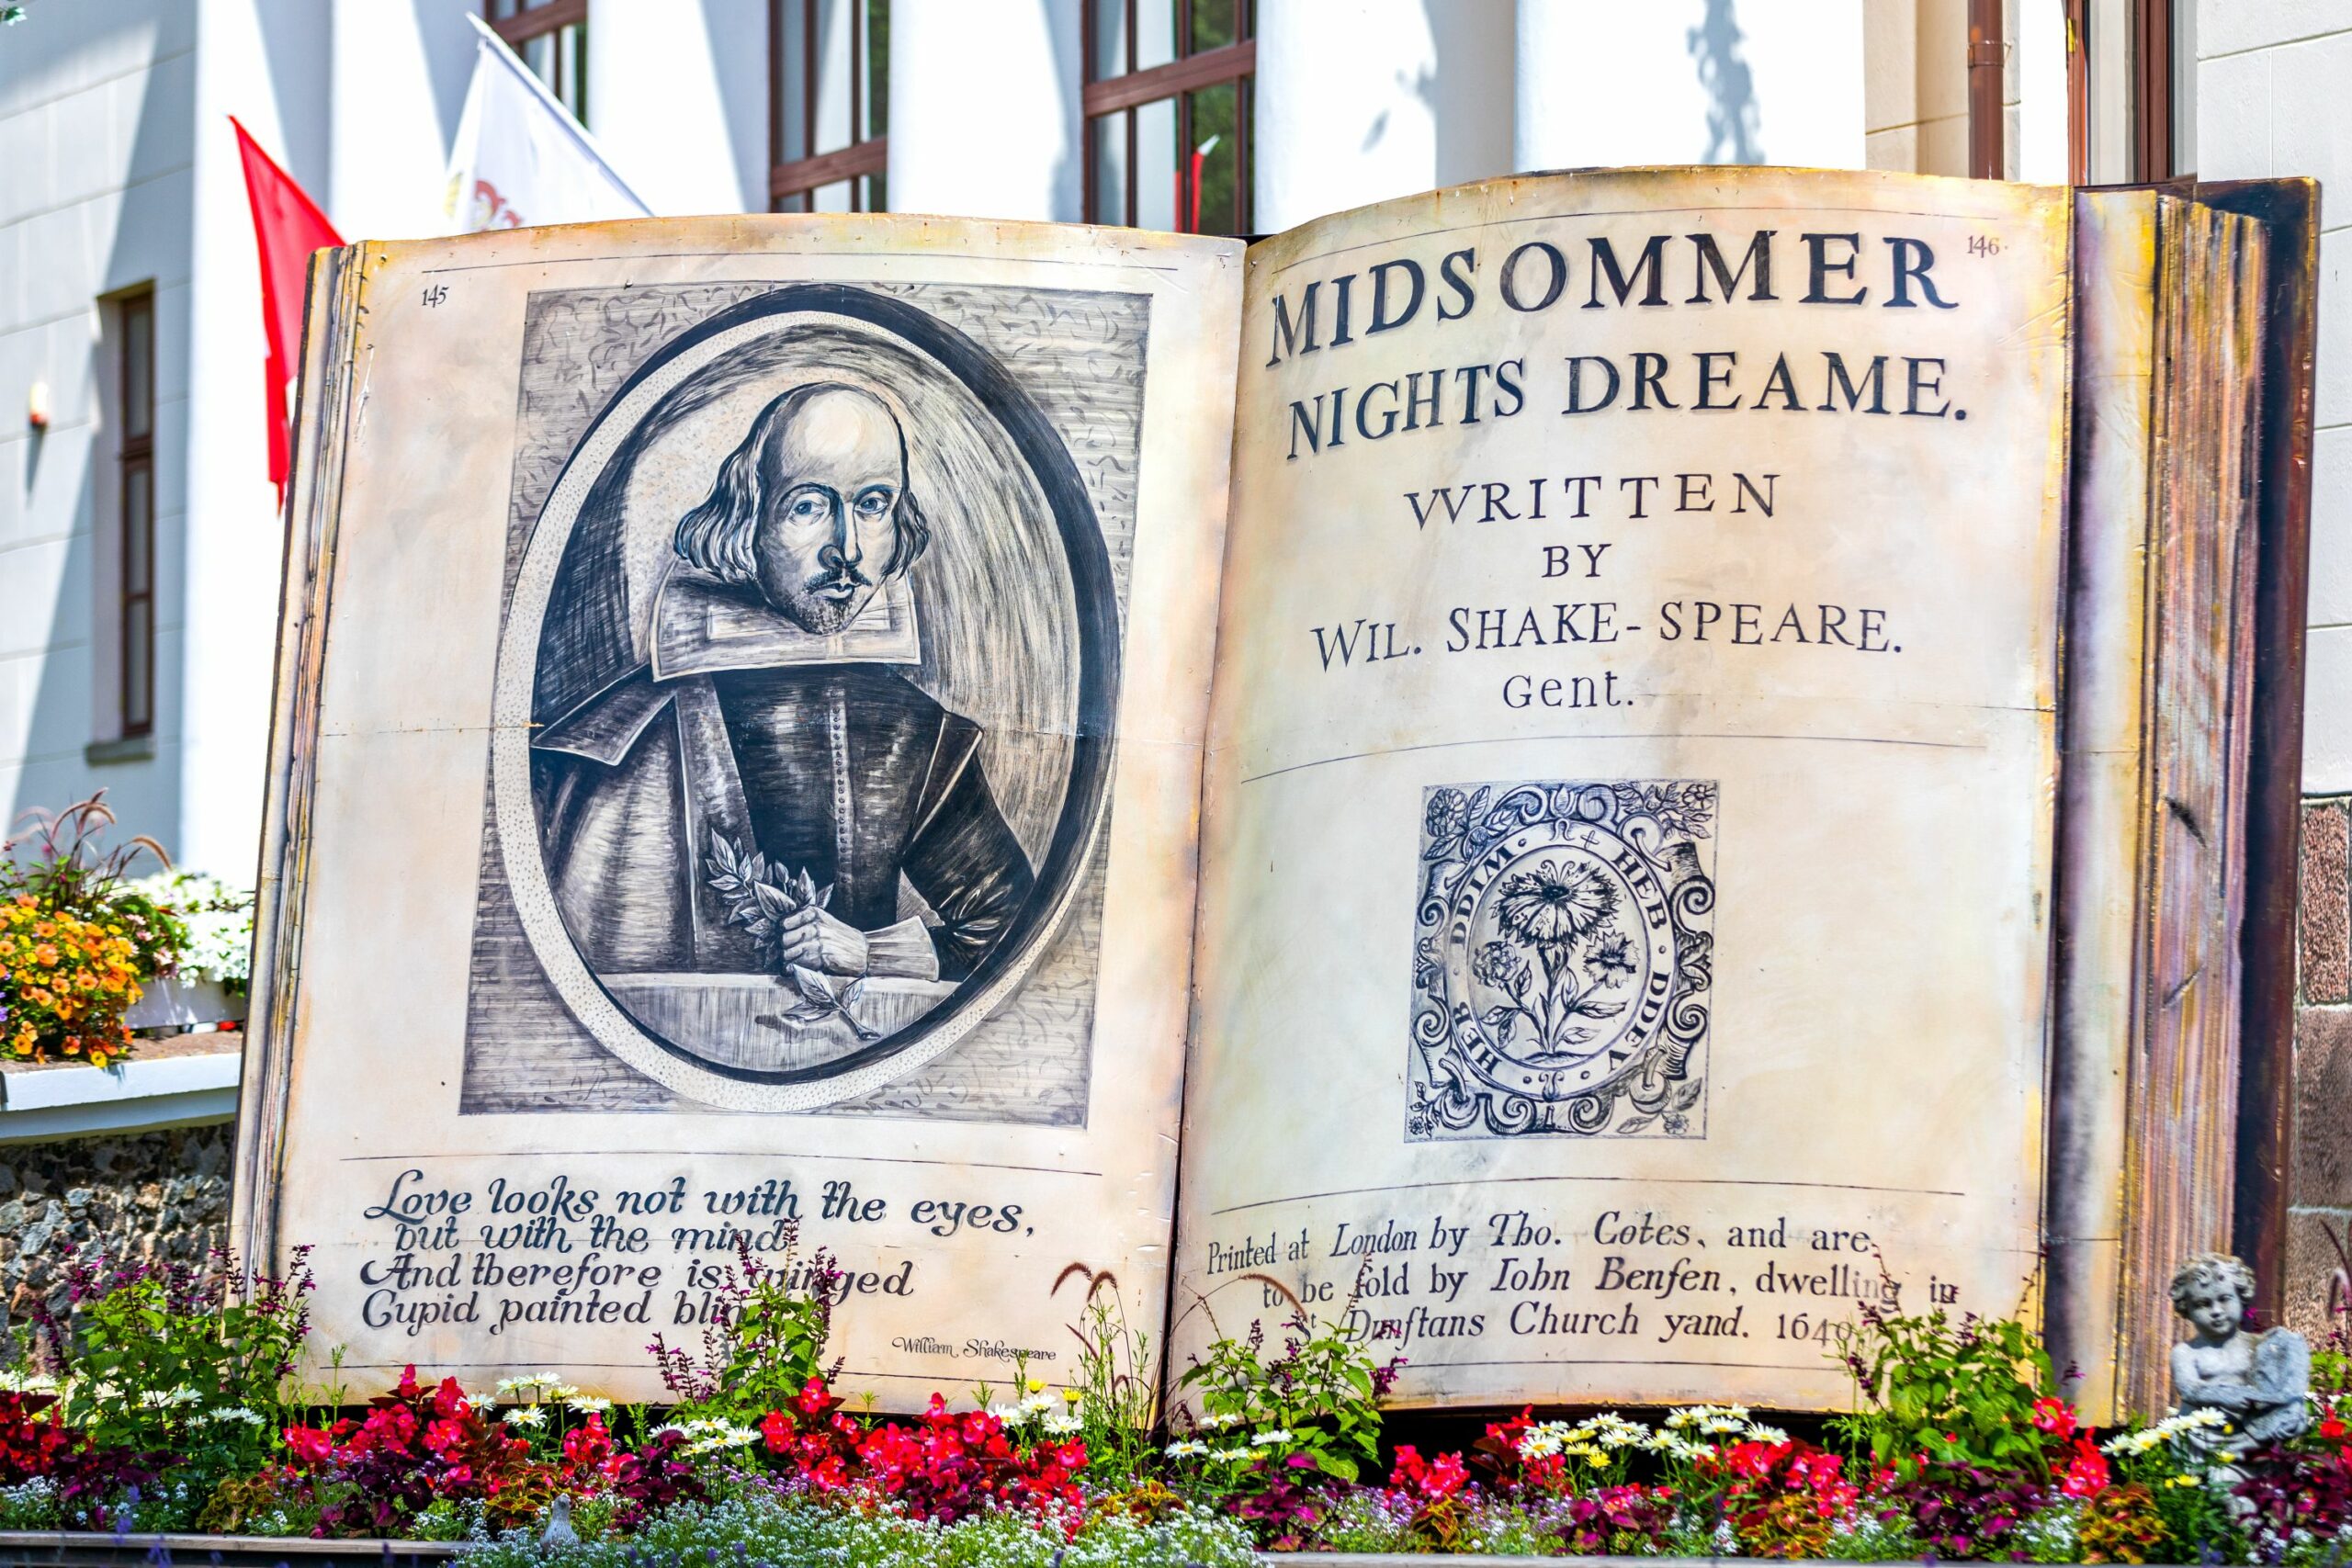 145
Love looks not with the eyes,
but with the mind
And therefore is winged
Cupid painted
William Shakespeare
146.
MIDSOMMER
NIGHTS DREAME.
WRITTEN
BY
WIL. SHAKE-SPEARE.
Gent.
HEB DDIM · HEB · DDEV
Printed at London by Tho. Cotes, and are
to be ſold by Iohn Benſen, dwelling in
St Dunſtans Church yand. 1640